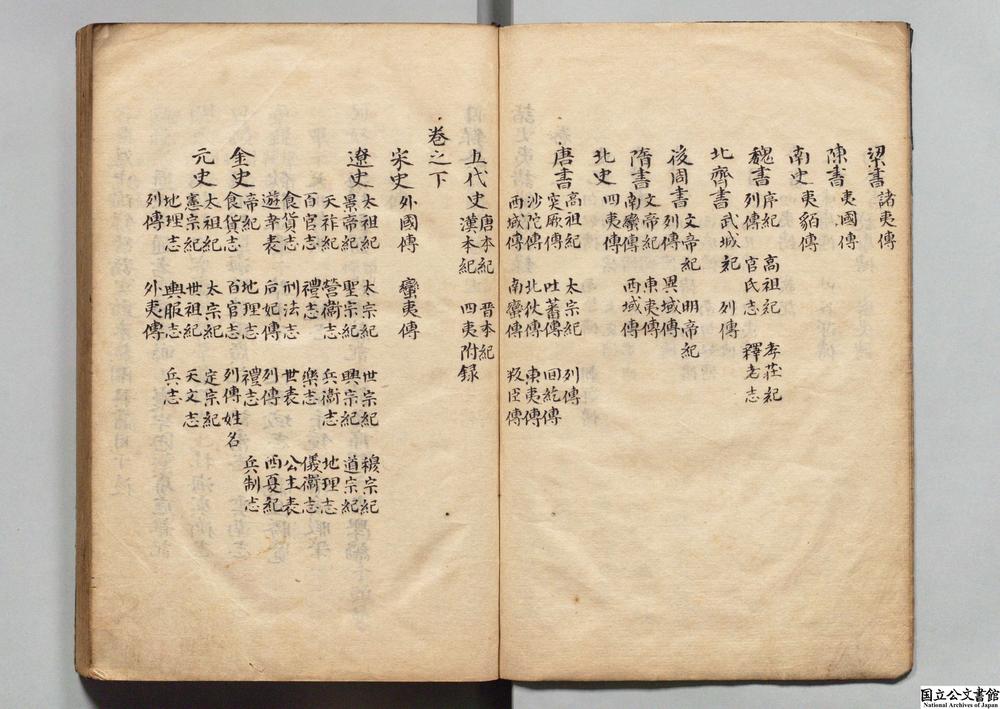 梁書 諸夷傳
陳書 夷國傳
南史 夷貊傳
魏書 序紀 高祖紀 孝莊紀
列傳 官氏志 釋老志
北齊書 武城紀 列傳
後周書 文帝紀 明帝紀
列傳 異域傳
隋書 文帝紀 東夷傳
南蠻傳 西域傳
北史 四夷傳
唐書 高祖紀 太宗紀 列傳
突厥傳 吐蕃傳 回紇傳
沙陀傳 北狄傳 東夷傳
西域傳 南蠻傳 叛臣傳
五代史 唐本紀 晋本紀
漢本紀 四夷附録
卷之下
宋史 外國傳 蠻夷傳
遼史 太祖紀 太宗紀 世宗紀 穆宗紀
景帝紀 聖宗紀 興宗紀 道宗紀
天祚紀 營衞志 兵衞志 地理志
百官志 禮志 樂志 儀衞志
食貨志 刑法志 世表 公主表
遊幸表 后妃傳 列傳 西夏紀
金史 帝紀 地理志 禮志 兵制志
食貨志 百官志 列傳姓名
元史 太祖紀 太宗紀 定宗紀
憲宗紀 世祖紀 天文志
地理志 輿服志 兵志
列傳 外夷傳
国立公文書館
National Archives of Japan